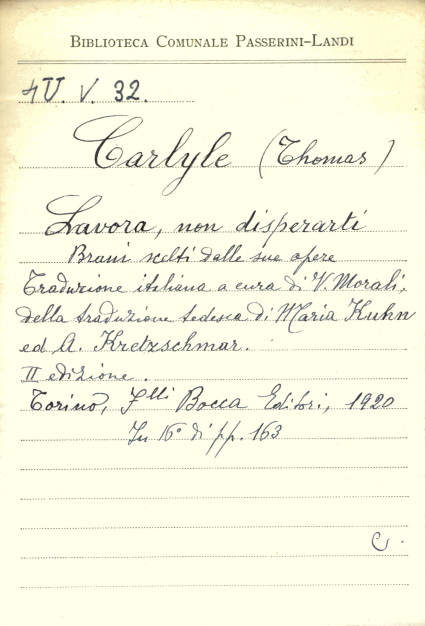 BIBLIOTECA COMUNALE PASSERINI-LANDI
4U. V. 32.
Carlyle (Thomas)
Lavora, non disperarti
Brani scelti dalle sue opere
Traduzione italiana a cura di V. Morali,
della traduzione tedesca di Maria Kuhn
ed A. Kretzschmar.
II edizione.
Torino, Flli Bocca Editori, 1920
In 16° di pp. 163
C.